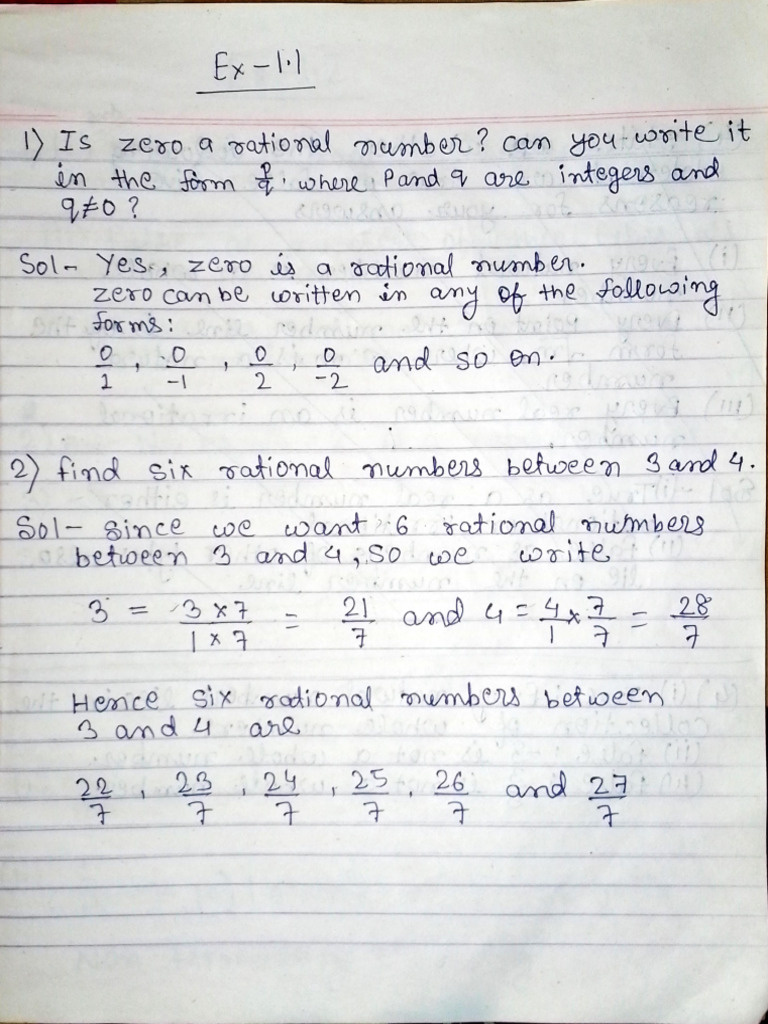 Ex-1.1
1) Is zero a rational number? can you write it
in the form p/q. where P and q are integers and
q≠0?
Sol- Yes, zero is a rational number.
zero can be written in any of the following
forms:
0/1, 0/-1, 0/2, 0/-2 and so on.
2) find six rational numbers between 3 and 4.
Sol- since we want 6 rational numbers
between 3 and 4, so we write
3 = 3×7/1×7 = 21/7 and 4 = 4/1 × 7/7 = 28/7
Hence six rational numbers between
3 and 4 are
22/7, 23/7, 24/7, 25/7, 26/7 and 27/7